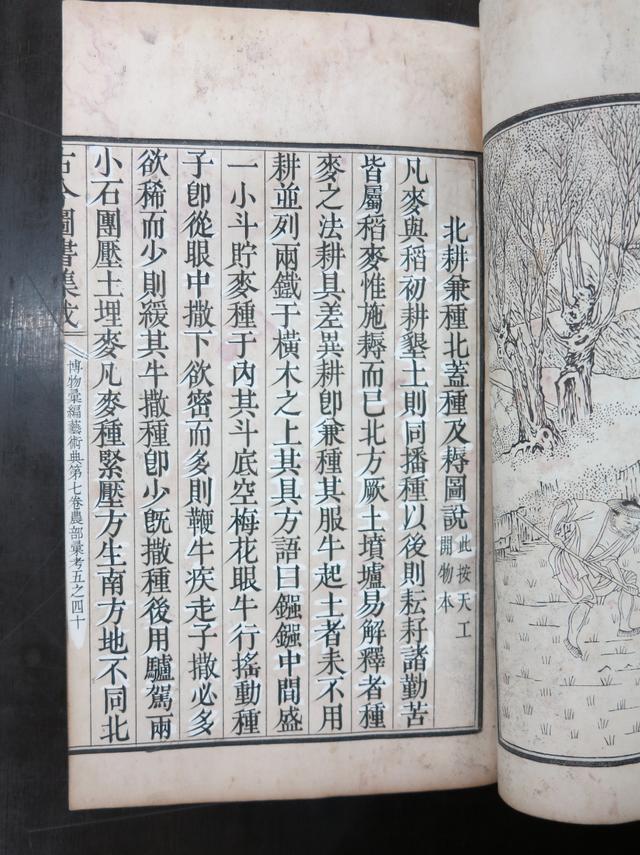 北耕兼種北蓋種及耨圖說 此按天工開物本
凡麥與稻初耕墾土則同播種以後則耘耔諸勤苦
皆屬稻麥惟施耨而已北方厥土墳壚易解釋者種
麥之法耕具差異耕卽兼種其服牛起土者未不用
耕並列兩鐵于橫木之上其具方語曰鏹鏹中間盛
一小斗貯麥種于內其斗底空梅花眼牛行搖動種
子卽從眼中撒下欲密而多則鞭牛疾走子撒必多
欲稀而少則緩其牛撒種卽少旣撒種後用驢駕兩
小石團壓土埋麥凡麥種緊壓方生南方地不同北
古今圖書集成 博物彙編藝術典第七卷農部彙考五之四十